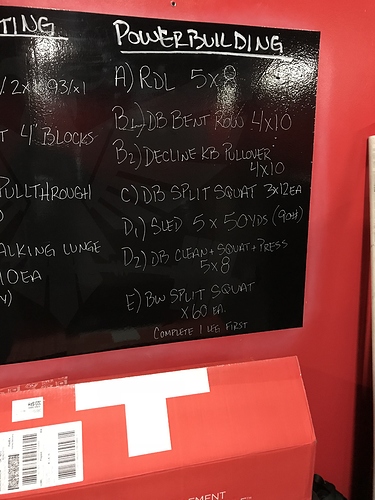 TING
POWERBUILDING
A) RDL 5x8
/2x1 93/x1
B1) DB BENT ROW 4x10
T 4" BLOCKS
B2) DECLINE KB PULLOVER
4x10
PULLTHROUGH
C) DB SPLIT SQUAT 3x12EA
D1) SLED 5 x 50YDS (90#)
ALKING LUNGE
10EA
D2) DB CLEAN + SQUAT + PRESS
5x8
E) BW SPLIT SQUAT
x 60 EA.
COMPLETE 1 LEG FIRST
EMENT